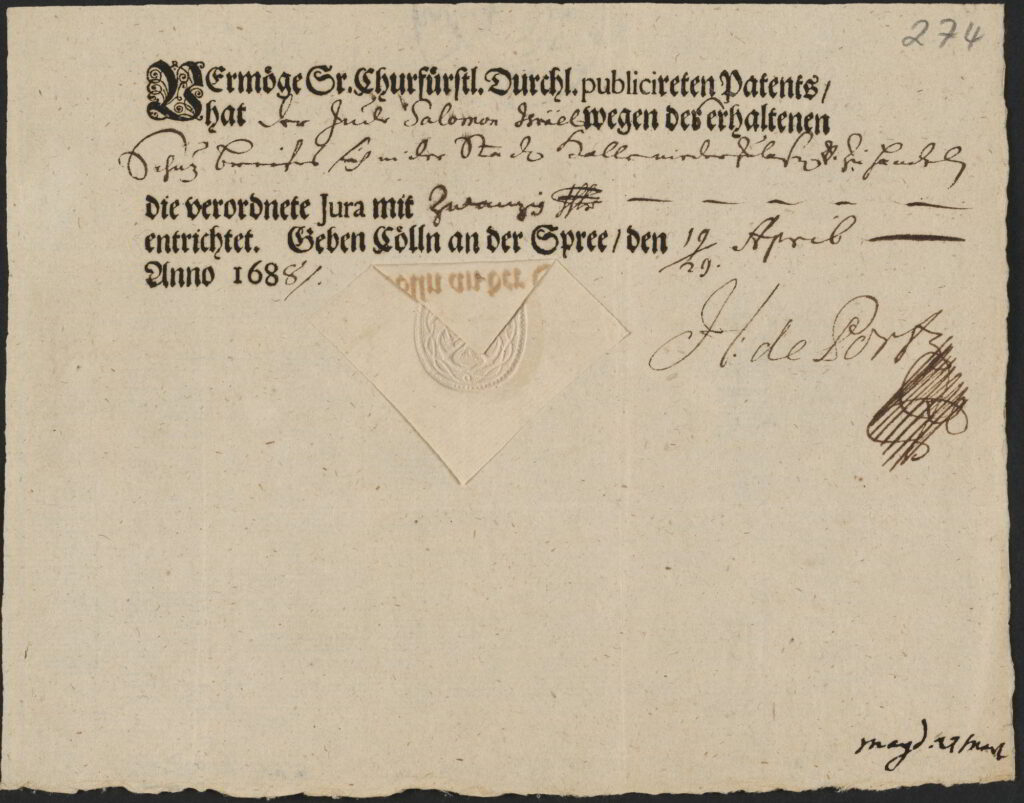 274
VErmöge Sr. Churfürstl. Durchl. publicireten Patents/
hat der Jude Salomon Israel wegen des erhaltenen
Schutz brieffes sich in der Stadt Halle niederzulaßen zu handeln
die verordnete Jura mit Zwanzig
entrichtet. Geben Cölln an der Spree/ den 19/29. April
Anno 1688/.
Cölln an der
H: de Portz
magd. 27